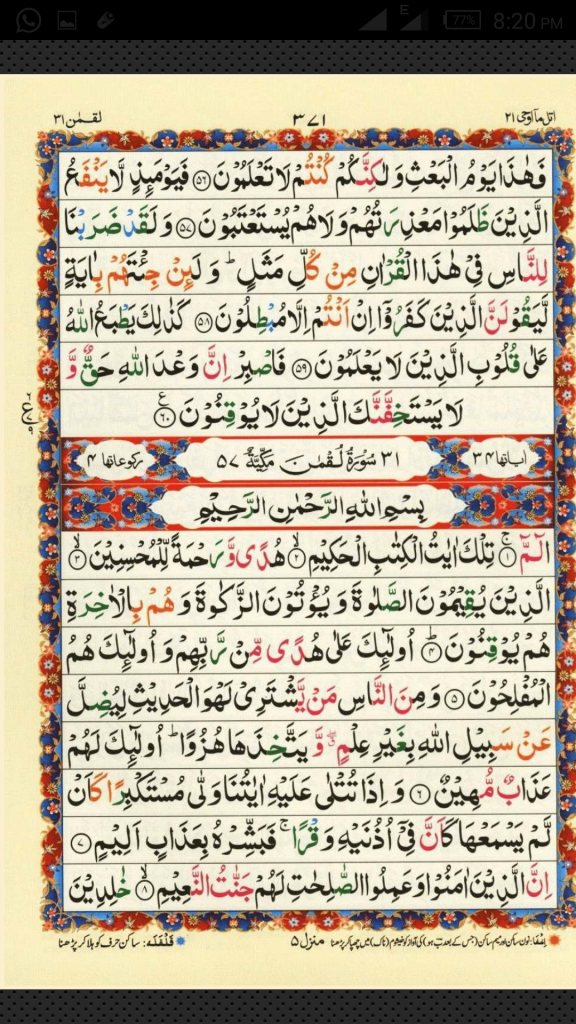 E 77% 8:20 PM
اتل ما اوحی ٢١ ٣٧١ لقمٰن ٣١
فَهٰذَا يَوْمُ الْبَعْثِ وَلٰكِنَّكُمْ كُنْتُمْ لَا تَعْلَمُوْنَ ﴿٥٦﴾ فَيَوْمَىِٕذٍ لَّا يَنْفَعُ
الَّذِيْنَ ظَلَمُوْا مَعْذِرَتُهُمْ وَلَا هُمْ يُسْتَعْتَبُوْنَ ﴿٥٧﴾ وَلَقَدْ ضَرَبْنَا
لِلنَّاسِ فِيْ هٰذَا الْقُرْاٰنِ مِنْ كُلِّ مَثَلٍ ؕ وَلَىِٕنْ جِئْتَهُمْ بِاٰيَةٍ
لَّيَقُوْلَنَّ الَّذِيْنَ كَفَرُوْۤا اِنْ اَنْتُمْ اِلَّا مُبْطِلُوْنَ ﴿٥٨﴾ كَذٰلِكَ يَطْبَعُ اللّٰهُ
عَلٰى قُلُوْبِ الَّذِيْنَ لَا يَعْلَمُوْنَ ﴿٥٩﴾ فَاصْبِرْ اِنَّ وَعْدَ اللّٰهِ حَقٌّ وَّ
لَا يَسْتَخِفَّنَّكَ الَّذِيْنَ لَا يُوْقِنُوْنَ ﴿٦٠﴾ ع
اٰیاتھا ٣٤ ٣١ سُوْرَةُ لُقْمٰنَ مَكِّيَّةٌ ٥٧ رکوعاتھا ٤
بِسْمِ اللّٰهِ الرَّحْمٰنِ الرَّحِيْمِ
الٓمّٓ ۚ﴿١﴾ تِلْكَ اٰيٰتُ الْكِتٰبِ الْحَكِيْمِ ۙ﴿٢﴾ هُدًى وَّرَحْمَةً لِّلْمُحْسِنِيْنَ ۙ﴿٣﴾
الَّذِيْنَ يُقِيْمُوْنَ الصَّلٰوةَ وَيُؤْتُوْنَ الزَّكٰوةَ وَهُمْ بِالْاٰخِرَةِ
هُمْ يُوْقِنُوْنَ ؕ﴿٤﴾ اُولٰٓىِٕكَ عَلٰى هُدًى مِّنْ رَّبِّهِمْ وَاُولٰٓىِٕكَ هُمُ
الْمُفْلِحُوْنَ ﴿٥﴾ وَمِنَ النَّاسِ مَنْ يَّشْتَرِيْ لَهْوَ الْحَدِيْثِ لِيُضِلَّ
عَنْ سَبِيْلِ اللّٰهِ بِغَيْرِ عِلْمٍ ۖ وَّيَتَّخِذَهَا هُزُوًا ؕ اُولٰٓىِٕكَ لَهُمْ
عَذَابٌ مُّهِيْنٌ ﴿٦﴾ وَاِذَا تُتْلٰى عَلَيْهِ اٰيٰتُنَا وَلّٰى مُسْتَكْبِرًا كَاَنْ
لَّمْ يَسْمَعْهَا كَاَنَّ فِيْۤ اُذُنَيْهِ وَقْرًا ۚ فَبَشِّرْهُ بِعَذَابٍ اَلِيْمٍ ﴿٧﴾
اِنَّ الَّذِيْنَ اٰمَنُوْا وَعَمِلُوا الصّٰلِحٰتِ لَهُمْ جَنّٰتُ النَّعِيْمِ ۙ﴿٨﴾ خٰلِدِيْنَ
اِخفَا: نون ساکن اور میم ساکن (جس کے بعد ب ہو) کی آواز کو خیشوم (ناک) میں چھپا کر پڑھنا منزل ٥ قَلْقَلَه: ساکن حرف کو ہلا کر پڑھنا